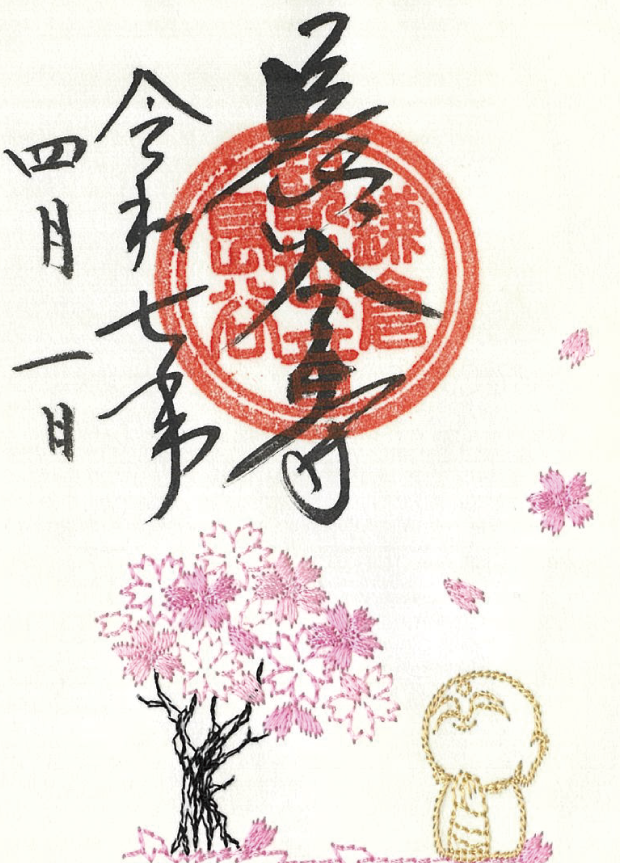 長谷寺
令和七年
四月一日
鎌倉
長谷